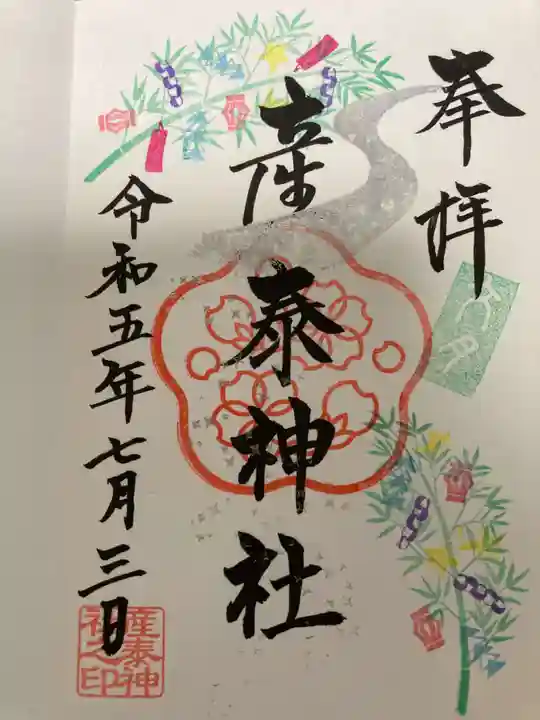 奉拝
七月
産泰神社
令和五年七月三日
産泰神
社之印